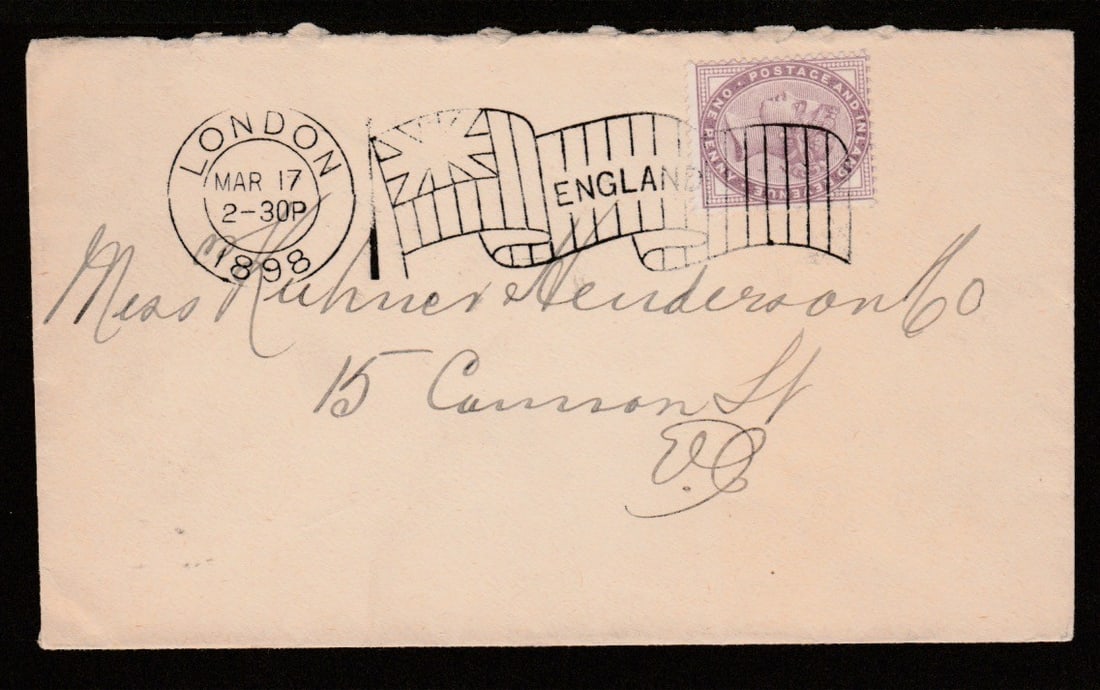 LONDON
MAR 17
2-30P
1898
ENGLAND
POSTAGE AND INLAND REVENUE · ONE PENNY
Messrs Kuhner Henderson & Co
15 Cannon St
E.C